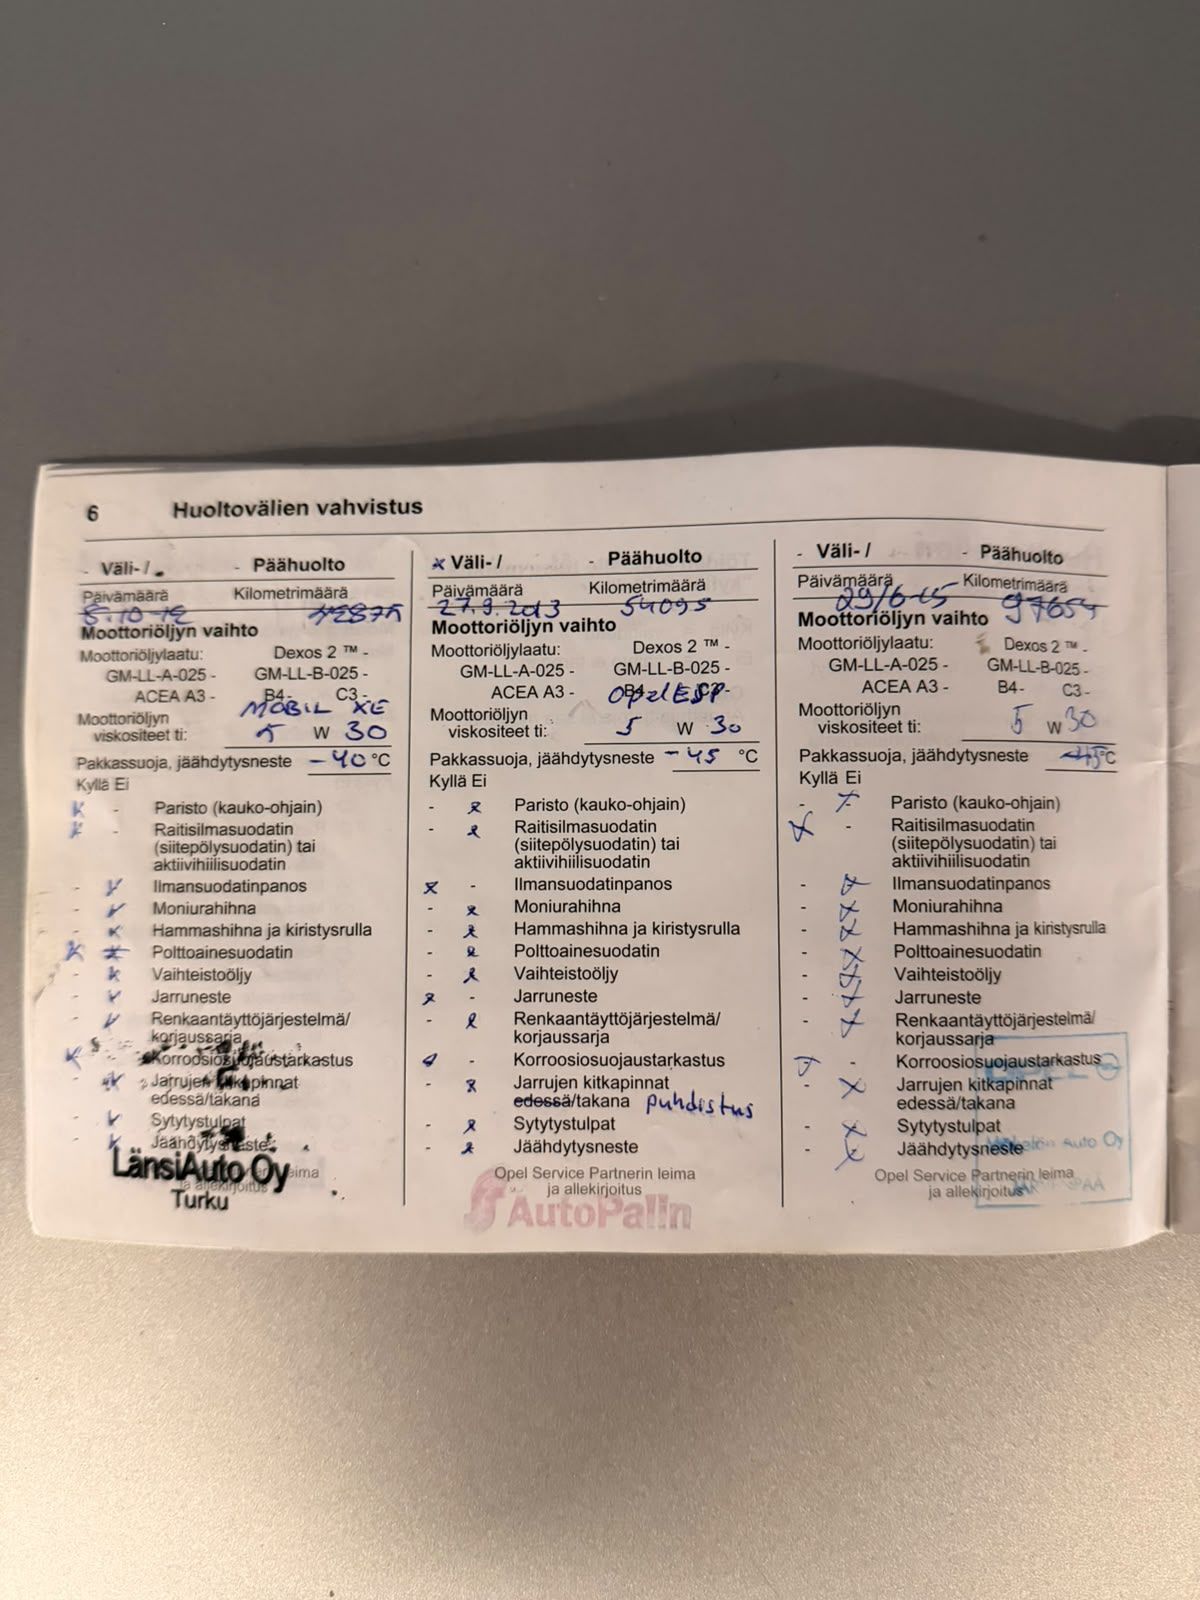 6 Huoltovälien vahvistus
- Väli- / - Päähuolto
Päivämäärä Kilometrimäärä
8.10-12
Moottoriöljyn vaihto
Moottoriöljylaatu: Dexos 2 ™ -
GM-LL-A-025 - GM-LL-B-025 -
ACEA A3 - B4- C3 -
MOBIL XE
Moottoriöljyn
viskositeet ti: 5 W 30
Pakkassuoja, jäähdytysneste -40 °C
Kyllä Ei
K - Paristo (kauko-ohjain)
K - Raitisilmasuodatin
(siitepölysuodatin) tai
aktiivihiilisuodatin
- Ilmansuodatinpanos
- Moniurahihna
- Hammashihna ja kiristysrulla
Polttoainesuodatin
- Vaihteistoöljy
- Jarruneste
- Renkaantäyttöjärjestelmä/
korjaussarja
Korroosiosuojaustarkastus
Jarrujen kitkapinnat
edessä/takana
Sytytystulpat
Jäähdytysneste
LänsiAuto Oy
ja allekirjoitus
Turku
x Väli- / - Päähuolto
Päivämäärä Kilometrimäärä
27.9.2013 54095
Moottoriöljyn vaihto
Moottoriöljylaatu: Dexos 2 ™ -
GM-LL-A-025 - GM-LL-B-025 -
ACEA A3 - B4- C3-
Opel ESP
Moottoriöljyn
viskositeet ti: 5 W 30
Pakkassuoja, jäähdytysneste -45 °C
Kyllä Ei
- x Paristo (kauko-ohjain)
- x Raitisilmasuodatin
(siitepölysuodatin) tai
aktiivihiilisuodatin
x - Ilmansuodatinpanos
- x Moniurahihna
- x Hammashihna ja kiristysrulla
- x Polttoainesuodatin
- x Vaihteistoöljy
x - Jarruneste
- x Renkaantäyttöjärjestelmä/
korjaussarja
- Korroosiosuojaustarkastus
- x Jarrujen kitkapinnat
edessä/takana puhdistus
- x Sytytystulpat
- x Jäähdytysneste
Opel Service Partnerin leima
ja allekirjoitus
AutoPalin
- Väli- / - Päähuolto
Päivämäärä Kilometrimäärä
29/6-15 97654
Moottoriöljyn vaihto
Moottoriöljylaatu: Dexos 2 ™ -
GM-LL-A-025 - GM-LL-B-025 -
ACEA A3 - B4- C3 -
Moottoriöljyn
viskositeet ti: 5 W 30
Pakkassuoja, jäähdytysneste °C
Kyllä Ei
- x Paristo (kauko-ohjain)
x - Raitisilmasuodatin
(siitepölysuodatin) tai
aktiivihiilisuodatin
- x Ilmansuodatinpanos
- x Moniurahihna
- x Hammashihna ja kiristysrulla
- x Polttoainesuodatin
- x Vaihteistoöljy
- x Jarruneste
- x Renkaantäyttöjärjestelmä/
korjaussarja
x - Korroosiosuojaustarkastus
- x Jarrujen kitkapinnat
edessä/takana
- x Sytytystulpat
- x Jäähdytysneste
Auto Oy
Opel Service Partnerin leima
ja allekirjoitus